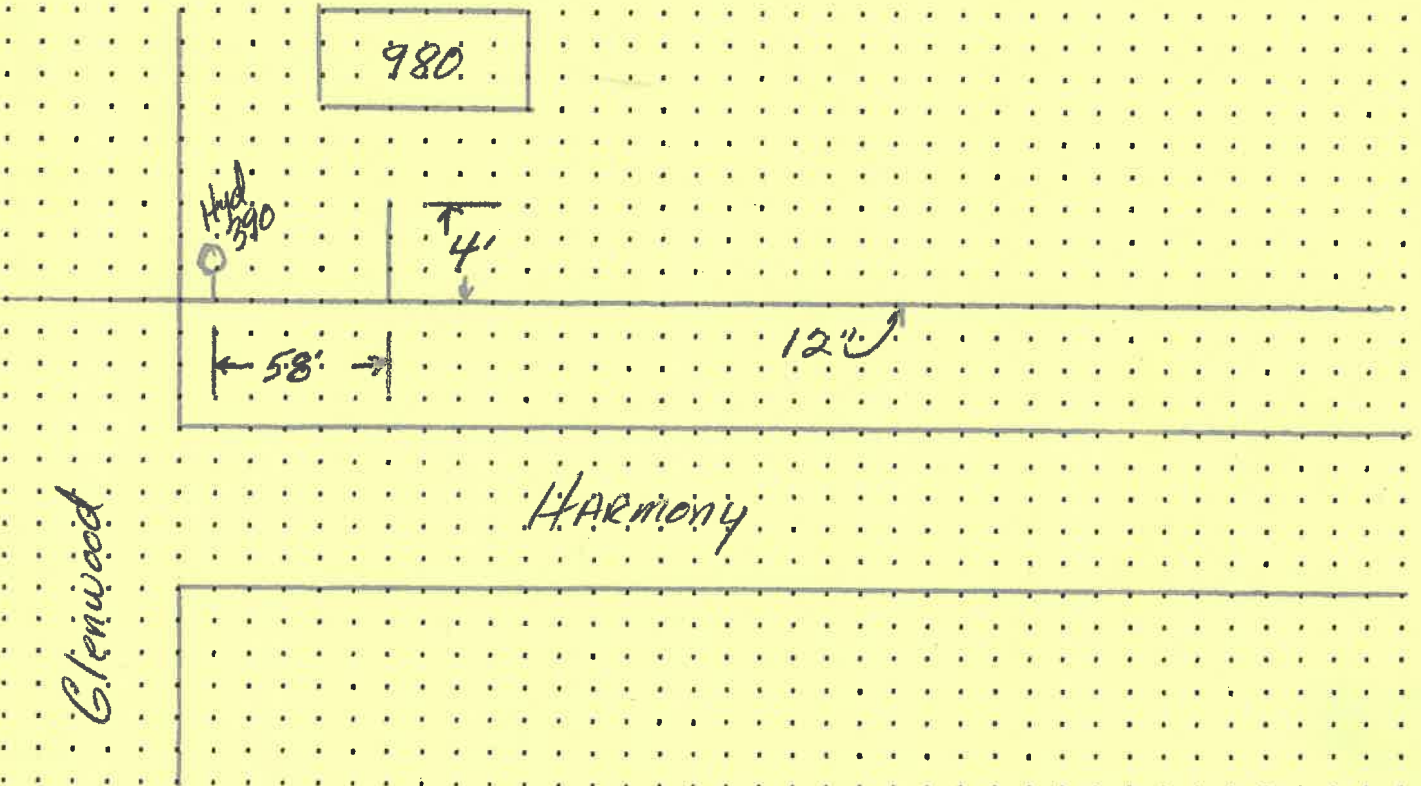 980
Hyd
390
4'
12"
58'
HARMONY
Glenwood